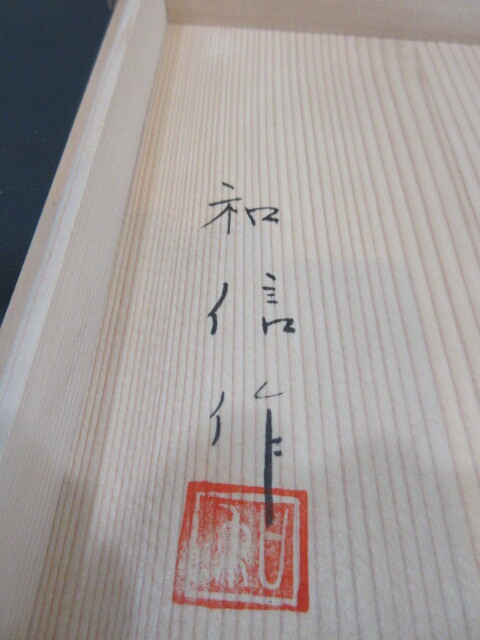 和信作